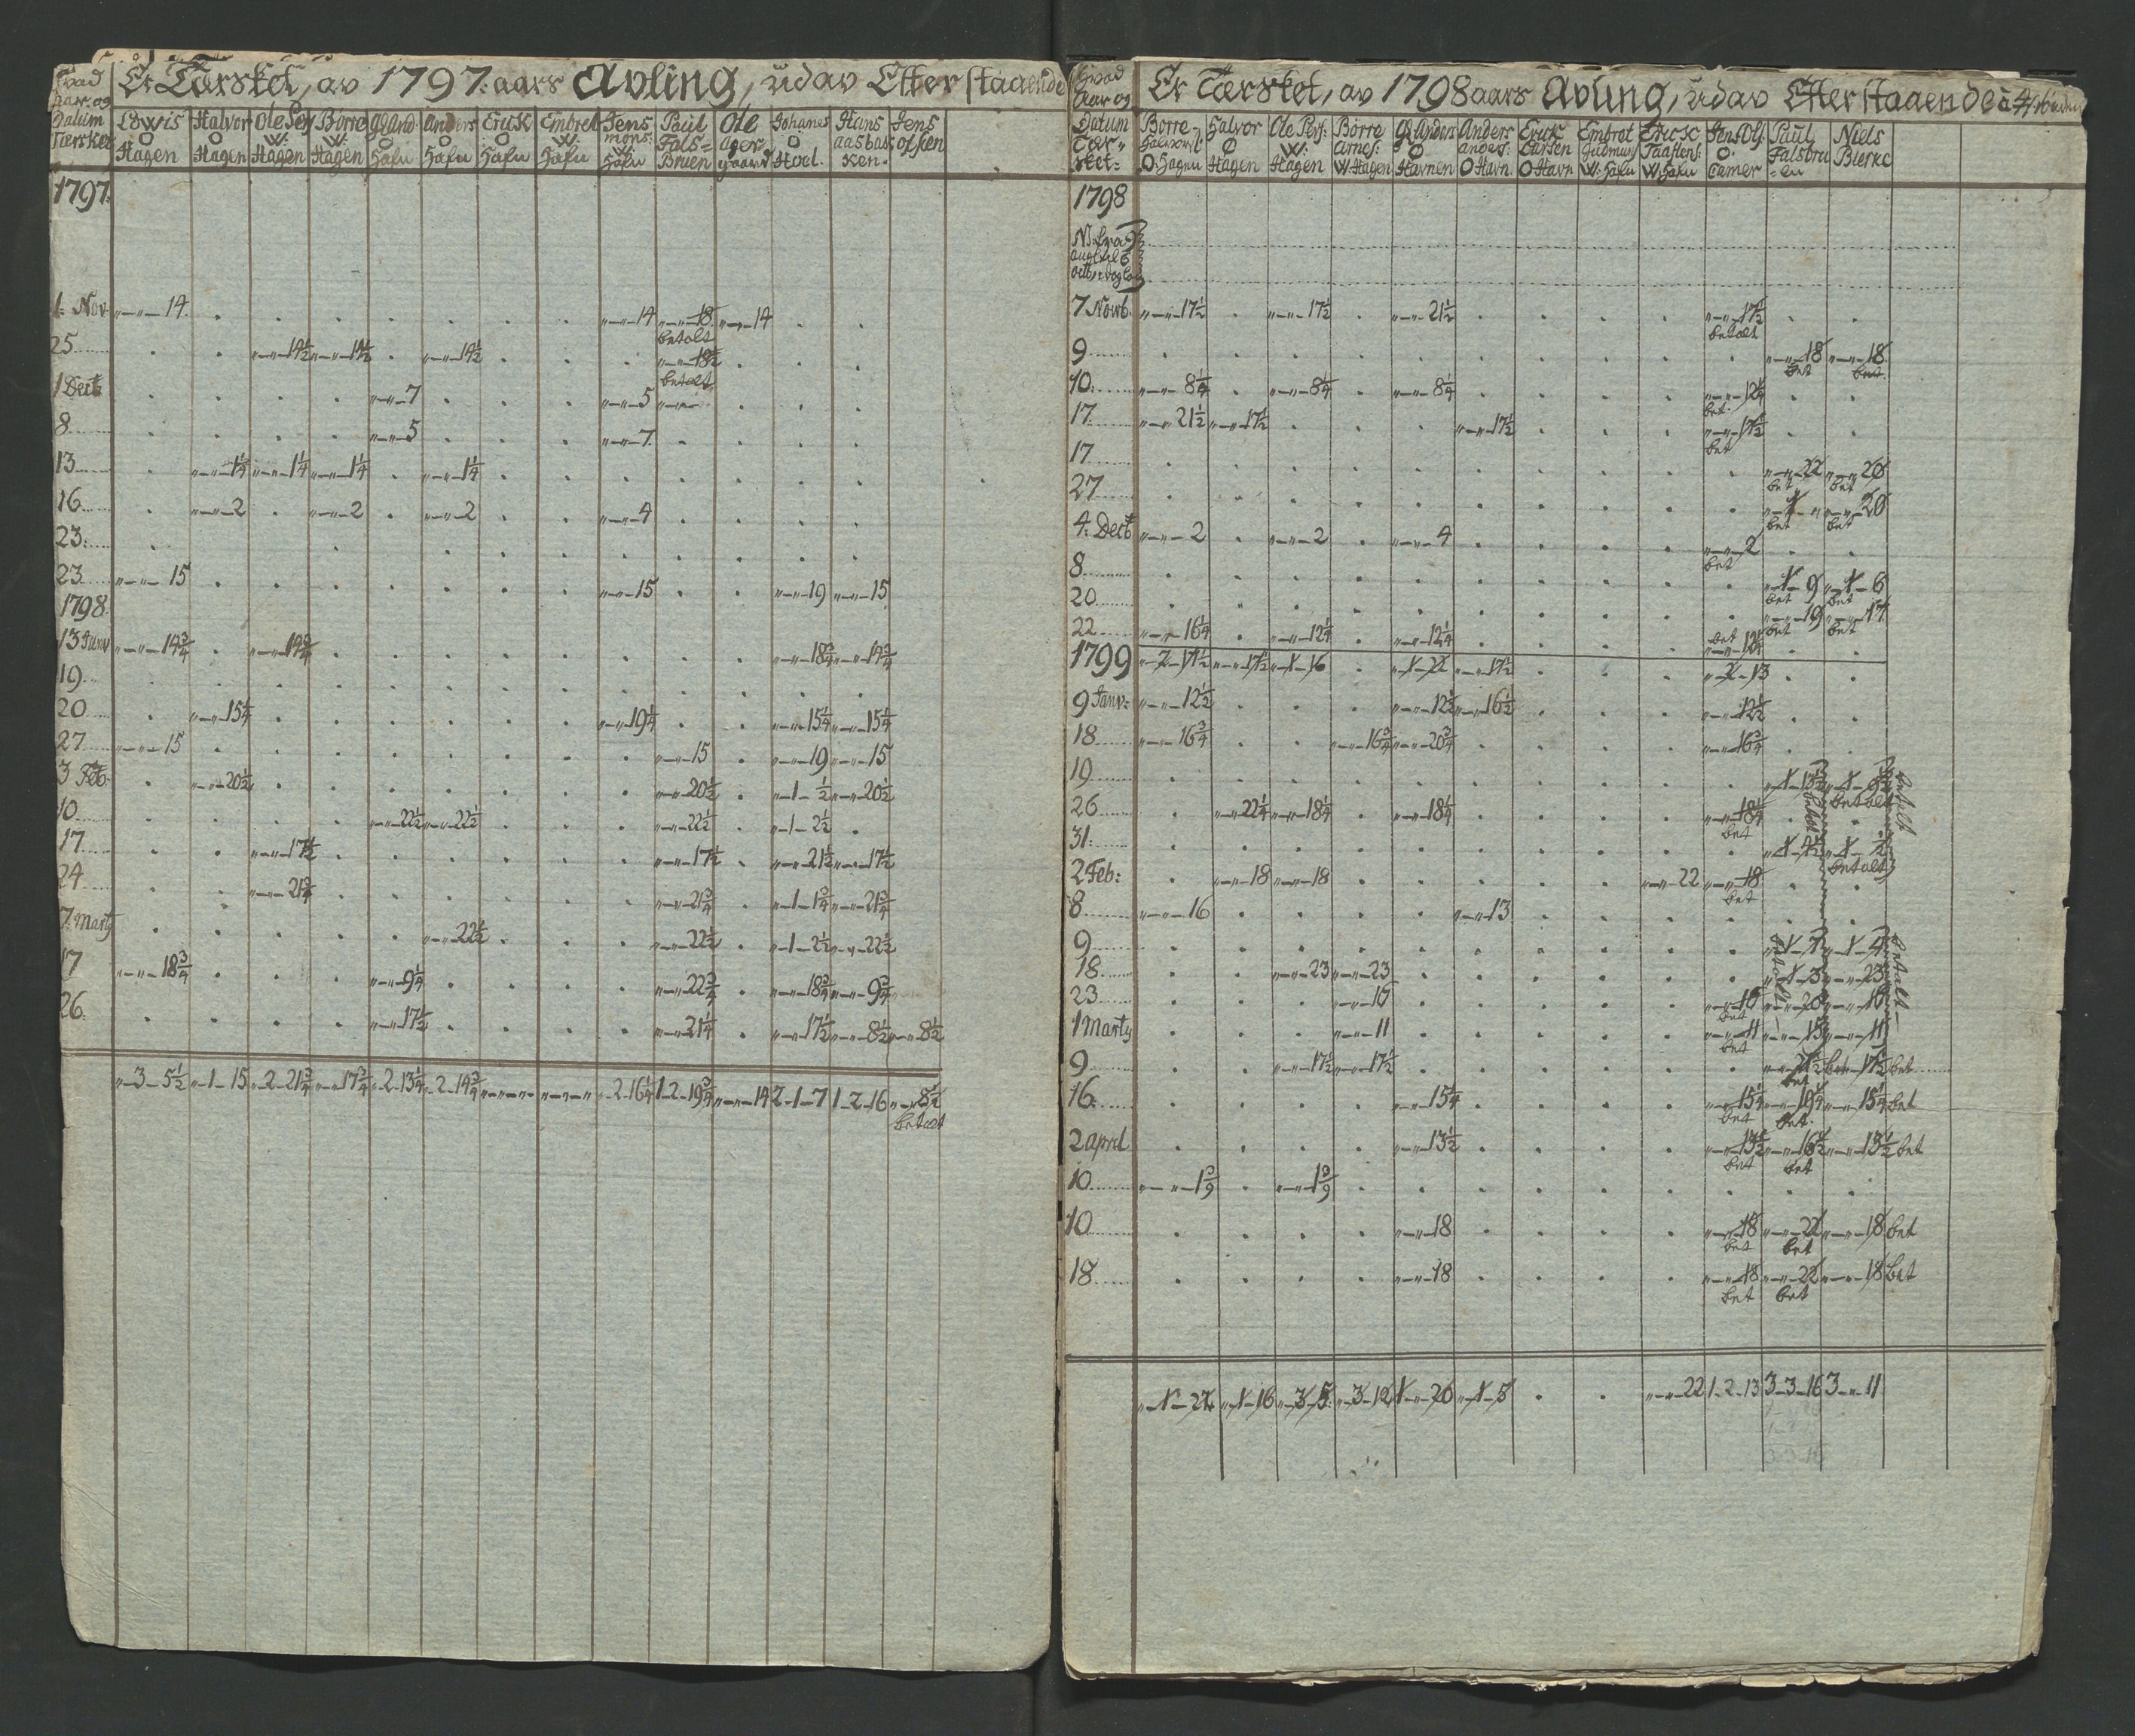 Hvad Aar og Datum Tærsket
Er Tærsket, av 1797: aars Avling, udav Efterstaaende
Lowis O Hagen | Halvor O Hagen | Ole Pey W: Hagen | Borre W: Hagen | Gl And: O Hafn | Anders O Hafn | Erick O Hafn | Embret W: Hafn | Jens mons: W: Hafn | Paul Fals= Bruen | Ole ager gaard | Johanes O Hoel. | Hans aasbak ken. | Jens ofsen
1797:
1: Nov „—„—14 . . . . . . . „—„—14 „—„—18 betalt „—„—14 . .
25 . . „—„—14½ „—„—14½ . „—„—14½ . . . „—„—18½ betalt . . .
1 Decb . . . . „—„—7 . . . „—„—5 „—„— . . .
8 . . . . „—„—5 . . . „—„—7 . . . .
13 . „—„—1¼ „—„—1¼ „—„—1¼ . „—„—1¼ . . . . . . .
16 . „—„—2 . „—„—2 . „—„—2 . . „—„—4 . . . .
23: . . . . . . . . . .
23 „—„—15 . . . . . . . „—„—15 . . „—„—19 „—„—15
1798.
13 Janv „—„—14¾ . „—„—14¾ . . . . . . . . „—„—18¾ „—„—14¾
19 . . . . . . . . . . . . .
20 . „—„—15¼ . . . . . . „—„—19¼ . . „—„—15¼ „—„—15¼
27 „—„—15 . . . . . . . . „—„—15 . „—„—19 „—„—15
3 Feb: . „—„—20½ . . . . . . . „—„—20½ . „—1—½ „—„—20½
10 . . . . „—„—22½ „—„—22½ . . . „—„—22½ . „—1—2½ .
17 . . „—„—17½ . . . . . . „—„—17½ . „—„—21½ „—„—17½
24 . . „—„—21¾ . . . . . . „—„—21¾ . „—1—1¾ „—„—21¾
7 Marty . . . . . „—„—22½ . . . „—„—22½ . „—1—2½ „—„—22½
17 „—„—18¾ . . . „—„—9¼ . . . . „—„—22¾ . „—„—18¾ „—„—9¾
26: . . . . „—„—17½ . . . . „—„—21¼ . „—„—17½ „—„—8½ „—„—8½
„—3—5½ „—1—15 „—2—21¾ „—„—17¾ „—2—13¼ „—2—14¾ „—„—„— „—„—„ „—2—16¼ 1—2—19¾ „—„—14 2—1—7 1—2—16 „—„—8½ betalt
Hvad Aar og Datum Tær„ sket=
Er Tærsket, av 1798 aars Avling, udav Efterstaaende
Borre Halvor: O: Hagen | Halvor O Hagen | Ole Pers: W: Hagen | Börre Arnes: W: Hagen | Gl Anders O Havnen | Anders anders: O Havn. | Erick Larsen O Havn | Embret Gudmun: W: Hafn | Erick Taaslens: W: Hafn | Jens Ols: O: Camer | Paul Falsbru =en | Niels Bierke
1798
7 Novb. „—„—17½ . „—„—17½ . „—„—21½ . . . . „—„—17½ betalt . .
9 . . . . . . . . . . „—„—18 bet „—„—18 bet.
10: „—„—8¼ . „—„—8¼ . „—„—8¼ . . . . „—„—12¼ bet. . .
17 „—„—21½ „—„—17½ . . . „—„—17½ . . . „—„—17½ bet . .
17 . . . . . . . . . . „—„—22 bet „—„—20 bet
27 . . . . . . . . . . „—1—„ bet „—„—20 bet
4: Decb „—„—2 . „—„—2 . „—„—4 . . . . „—„—2 bet . .
8 . . . . . . . . . . „—1—9 bet „—1—6 bet
20 . . . . . . . . . . „—„—19 bet „—„—17 bet
22 „—„—16¼ . „—„—12¼ . „—„—12¼ . . . . bet „—„—12¼ . .
1799 „—2—17½ „—„—17½ „—1—16 . „—1—22 „—„—17½ . . . „—2—13 . .
9 Janv: „—„—12½ . . . „—„—12½ „—„—16½ . . . „—„—12½ . .
18 „—„—16¾ . . „—„—16¾ „—„—20¾ . . . . „—„—16¾ . .
19 . . . . . . . . . . „—1—13½ „—1—9½ betalt betalt
26 . „—„—22¼ „—„—18¼ . „—„—18¼ . . . . „—„—18¼ bet . .
31: . . . . . . . . . . „—1—4½ „—1—½ betalt
2 Feb: . „—„—18 „—„—18 . . . . . „—„—22 „—„—18 bet . .
8 „—„—16 . . . . „—„—13 . . . . . .
9 . . . . . . . . . . „—1—7 „—1—4 betalt
18 . . „—„—23 „—„—23 . . . . . . „—1—3 „—„—23
23 . . . „—„—16 . . . . . „—„—16 bet „—„—20 „—„—16
1 Marty . . . „—„—11 . . . . . „—„—11 bet „—„—15 „—„—11
9 . . „—„—17½ „—„—17½ . . . . . . „—„—21½ bet „—„—17½ bet
16: . . . . „—„—15¼ . . . . „—„—15¼ bet „—„—19¼ bet. „—„—15¼ bet
2 April . . . . „—„—13½ . . . . „—„—13½ bet „—„—16½ bet „—„—13½ bet
10 „—„—1 3/9 . „—„—1 3/9 . . . . . . . . .
10 . . . . „—„—18 . . . . „—„—18 bet „—„—22 bet „—„—18 bet
18 . . . . „—„—18 . . . . „—„—18 bet „—„—22 bet „—„—18 bet
„—1—22 „—1—16 „—3—5: „—3—12 1—„—20 „—1—5 . . „—„—22 1—2—13 3—3—16 3—„—11